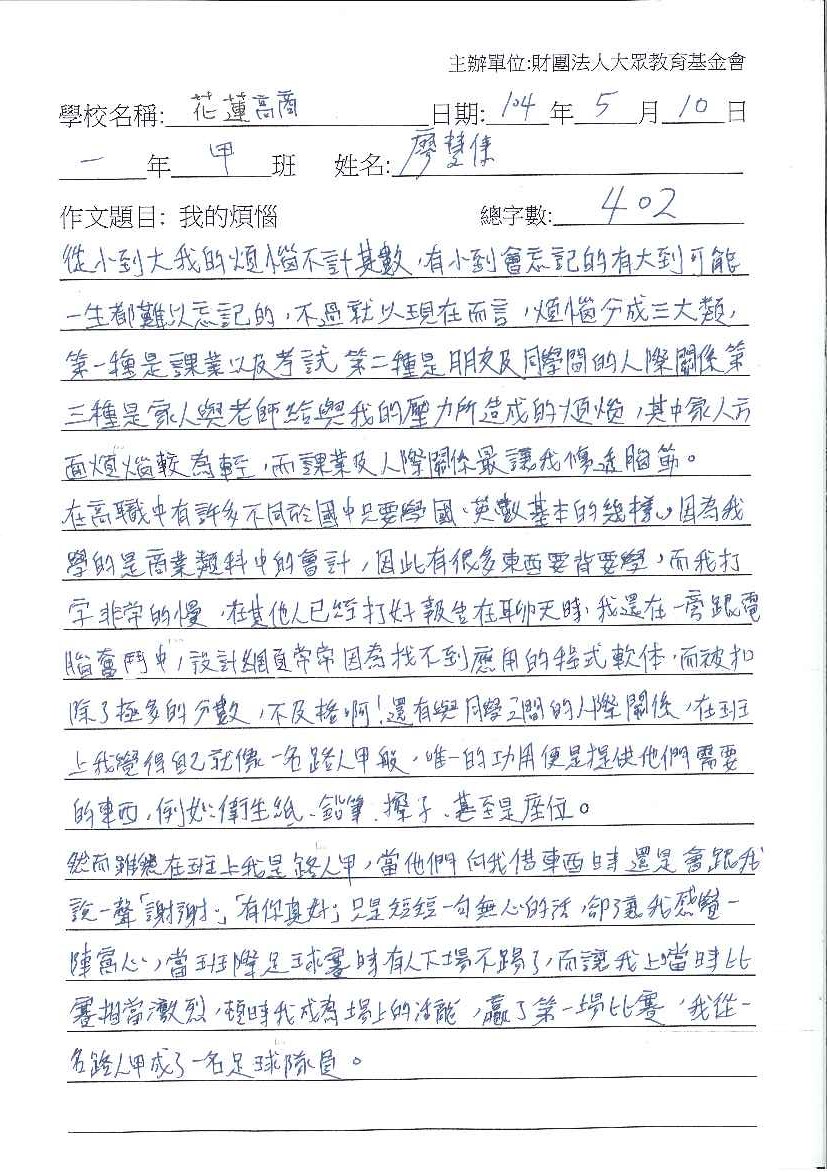 主辦單位:財團法人大眾教育基金會
學校名稱: 花蓮高商 日期: 104 年 5 月 10 日
一 年 甲 班 姓名: 廖慧倢
作文題目: 我的煩惱 總字數: 402
從小到大我的煩惱不計其數，有小到會忘記的有大到可能
一生都難以忘記的，不過就以現在而言，煩惱分成三大類，
第一種是課業以及考試 第二種是朋友及同學間的人際關係第
三種是家人與老師給與我的壓力所造成的煩惱，其中家人方
面煩惱較為輕，而課業及人際關係最讓我傷透腦筋。
在高職中有許多不同於國中只要學國、英數基本的幾樣。因為我
學的是商業類科中的會計，因此有很多東西要背要學，而我打
字非常的慢，在其他人已經打好報告在聊天時，我還在一旁跟電
腦奮鬥中，設計網頁常常因為找不到應用的程式軟体，而被扣
除了極多的分數，不及格啊！還有與同學之間的人際關係，在班
上我覺得自己就像一名路人甲般，唯一的功用便是提供他們需要
的東西，例如：衛生紙、鉛筆、擦子、甚至是座位。
然而雖然在班上我是路人甲，當他們向我借東西時還是會跟我
說一聲「謝謝」、「有你真好」只是短短一句無心的活，卻讓我感覺一
陣窩心，當班際足球賽時有人下場不踢了，而讓我上噹時比
賽相當激烈，頓時我成為場上的活龍，贏了第一場比賽，我從一
名路人甲成了一名足球隊員。